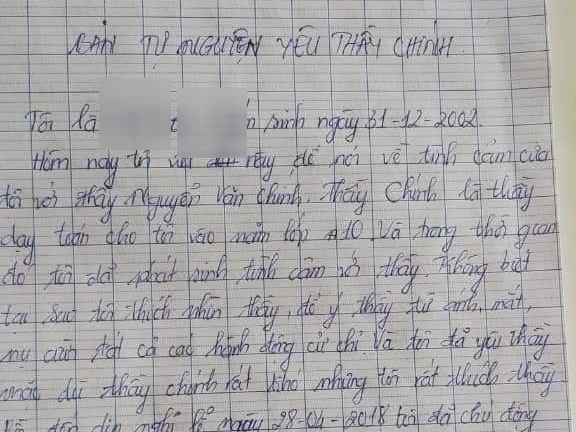 BẢN TỰ NGUYỆN YÊU THẦY CHÍNH.
Tôi là sinh ngày 31-12-2002.
Hôm nay tôi này để nói về tình cảm của
tôi với thầy Nguyễn Văn Chính. Thầy Chính là thầy
dạy toán cho tôi vào năm lớp 10. Và trong thời gian
đó tôi đã phát sinh tình cảm với thầy. Không biết
tại sao tôi thích nhìn thầy, để ý thầy từ ánh mắt,
nụ cười tất cả các hành động cử chỉ. Và tôi đã yêu thầy
mặc dù thầy chính rất khó nhưng tôi rất thích thầy
nghỉ lễ ngày 28-04-2018 tôi đã chủ động